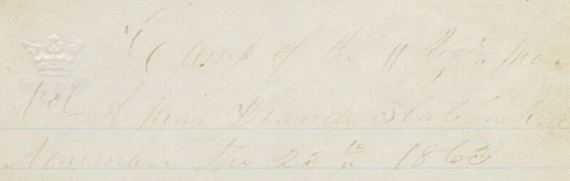 Camp of the 11 Regt Mas
Vol near Brandy Station Va
November the 25th 1863